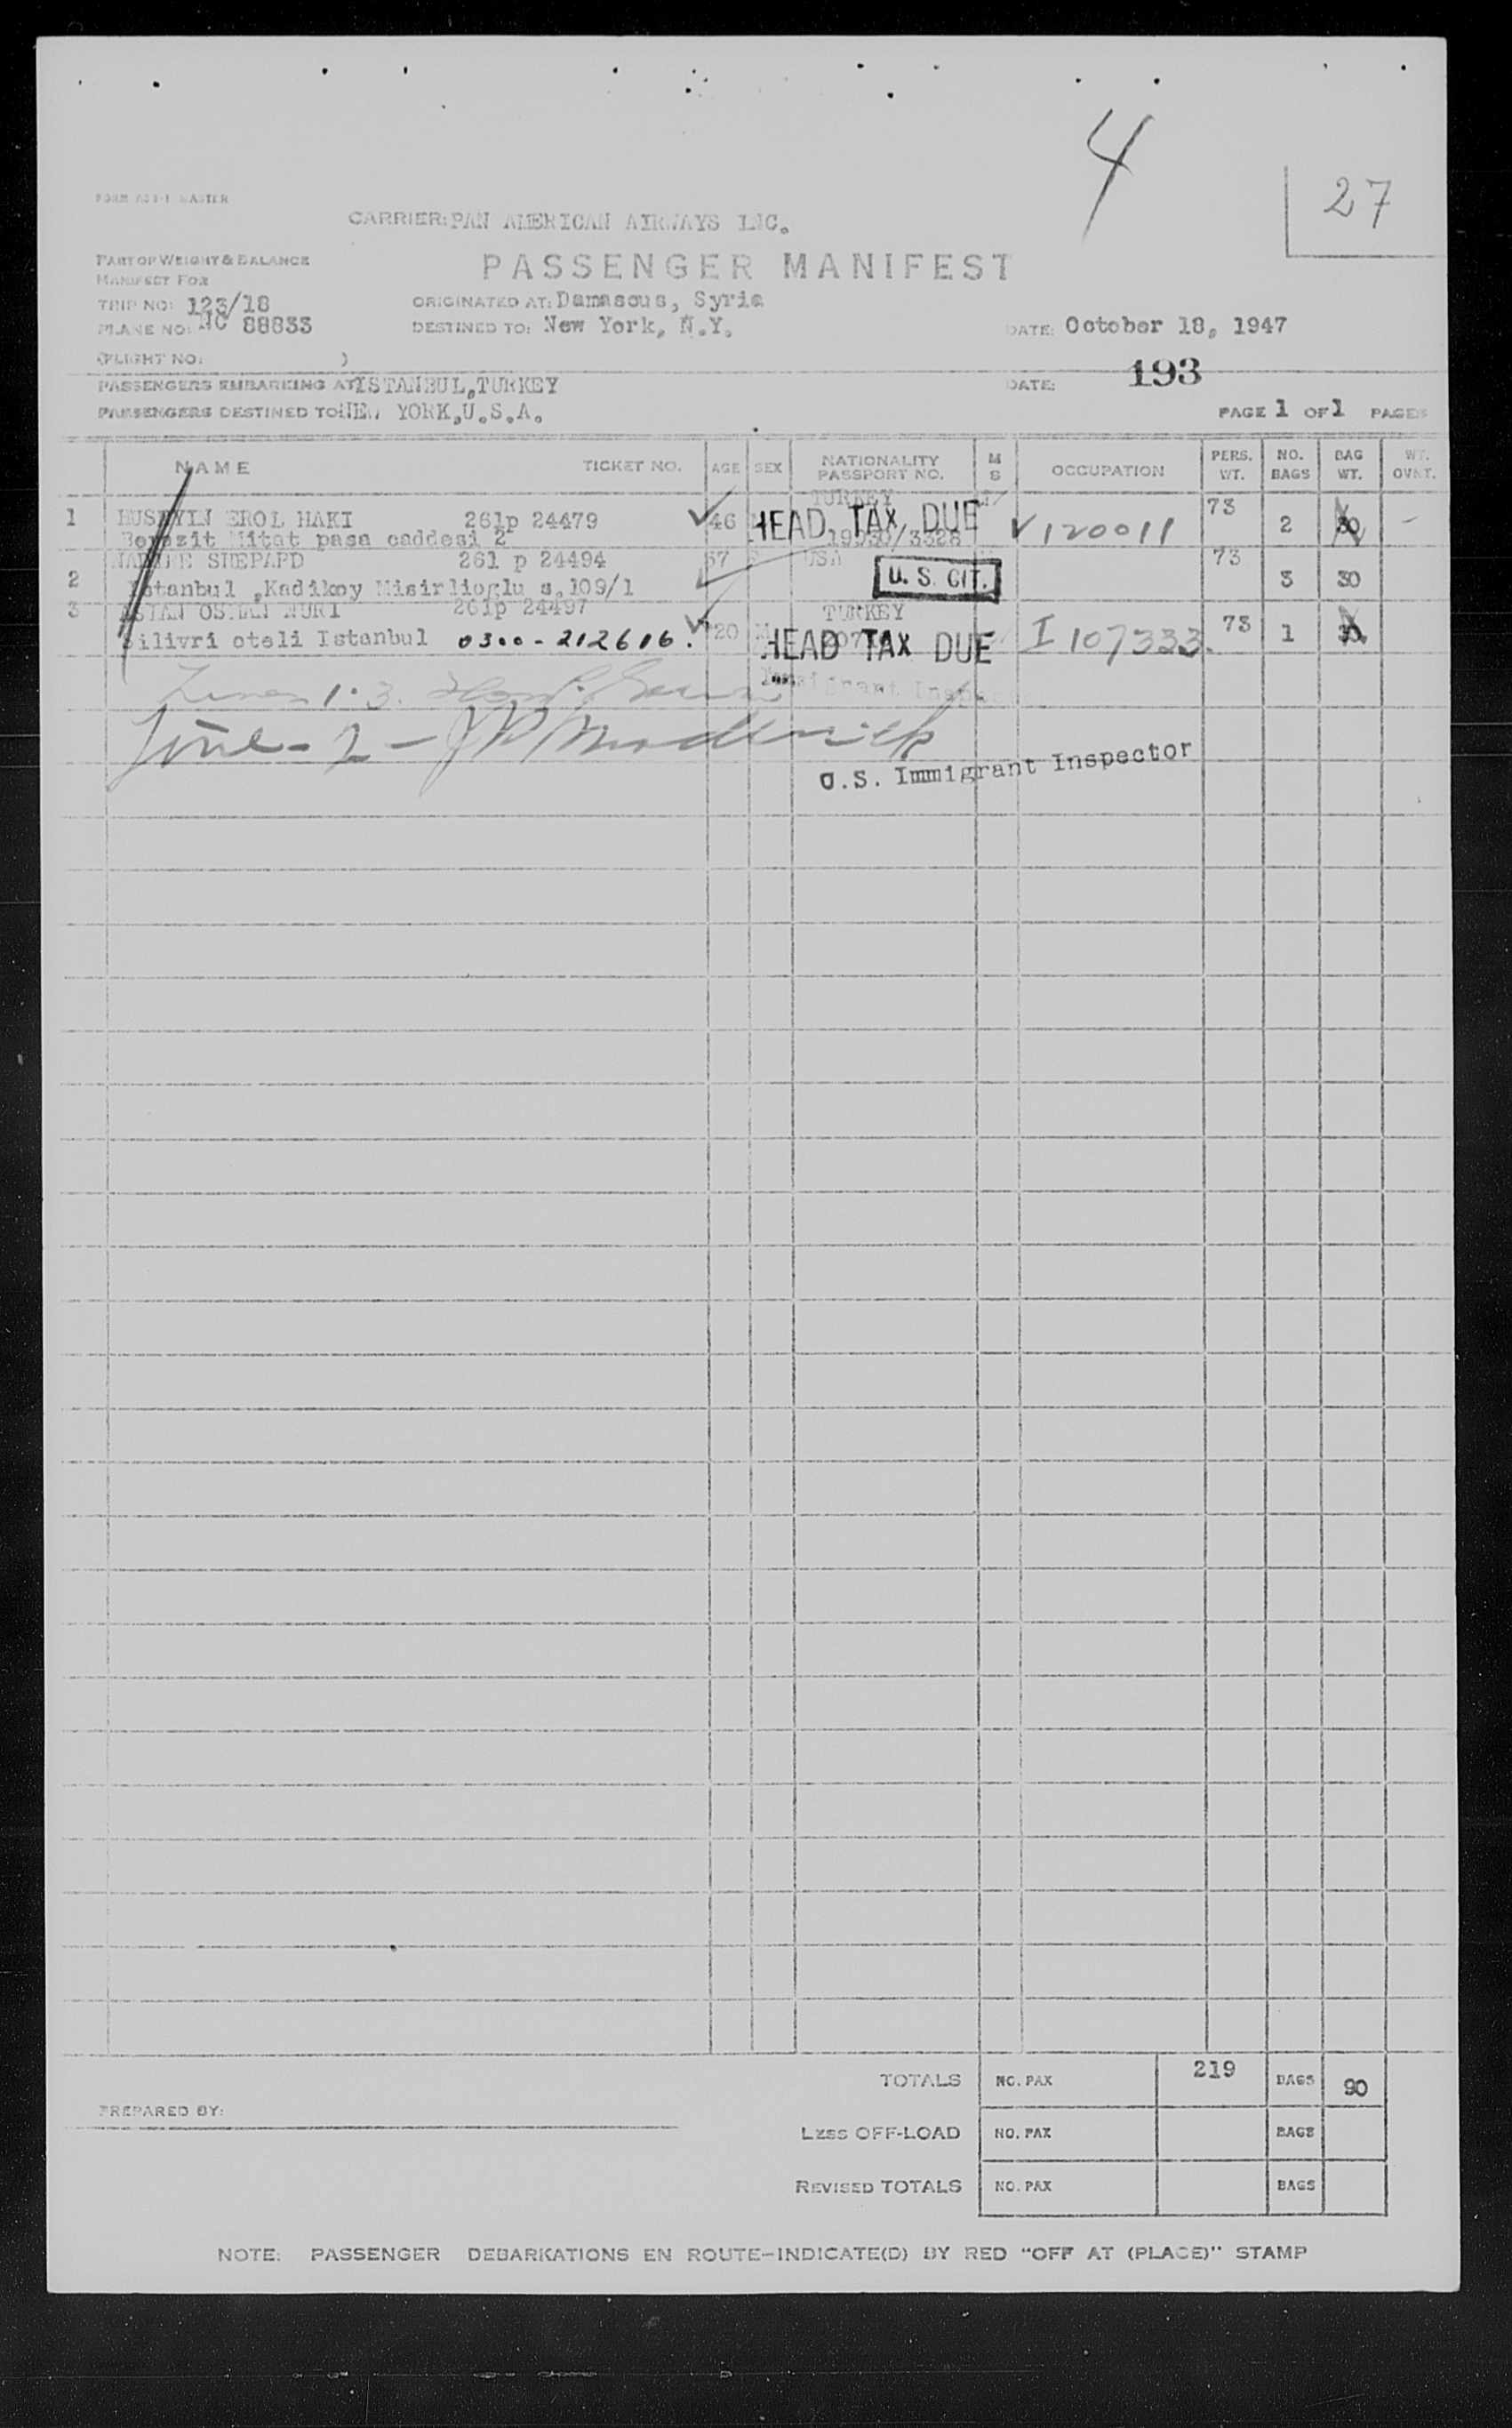 4
27
CARRIER: PAN AMERICAN AIRWAYS INC.
PART OF WEIGHT & BALANCE
MANIFEST FOR
PASSENGER MANIFEST
TRIP NO: 123/18
ORIGINATED AT: Damascus, Syria
PLANE NO: NC 88833
DESTINED TO: New York, N.Y.
DATE: October 18, 1947
(FLIGHT NO: )
193
PASSENGERS EMBARKING AT ISTANBUL, TURKEY
DATE:
PASSENGERS DESTINED TO NEW YORK, U.S.A.
PAGE 1 OF 1 PAGES
NAME TICKET NO. AGE SEX NATIONALITY PASSPORT NO. M S OCCUPATION PERS. WT. NO. BAGS BAG WT. WT. OVNT.
1 HUSEYIN EROL HAKI 261p 24479 46 TURKEY HEAD TAX DUE V120011 73 2 30 -
Beyazit Mitat pasa caddesi 2
SHEPARD 261 p 24494 57 USA U. S. CIT. 73 3 30
2 Istanbul ,Kadikoy Misirlioglu s.109/1
3 NURI 261p 24497 20 TURKEY HEAD TAX DUE I 107333. 73 1
Silivri oteli Istanbul 0300-212616.
Immigrant
Lines 1.3.
Line - 2 -
U.S. Immigrant Inspector
TOTALS NO. PAX 219 BAGS 90
PREPARED BY:
LESS OFF-LOAD NO. PAX BAGS
REVISED TOTALS NO. PAX BAGS
NOTE: PASSENGER DEBARKATIONS EN ROUTE-INDICATE(D) BY RED "OFF AT (PLACE)" STAMP